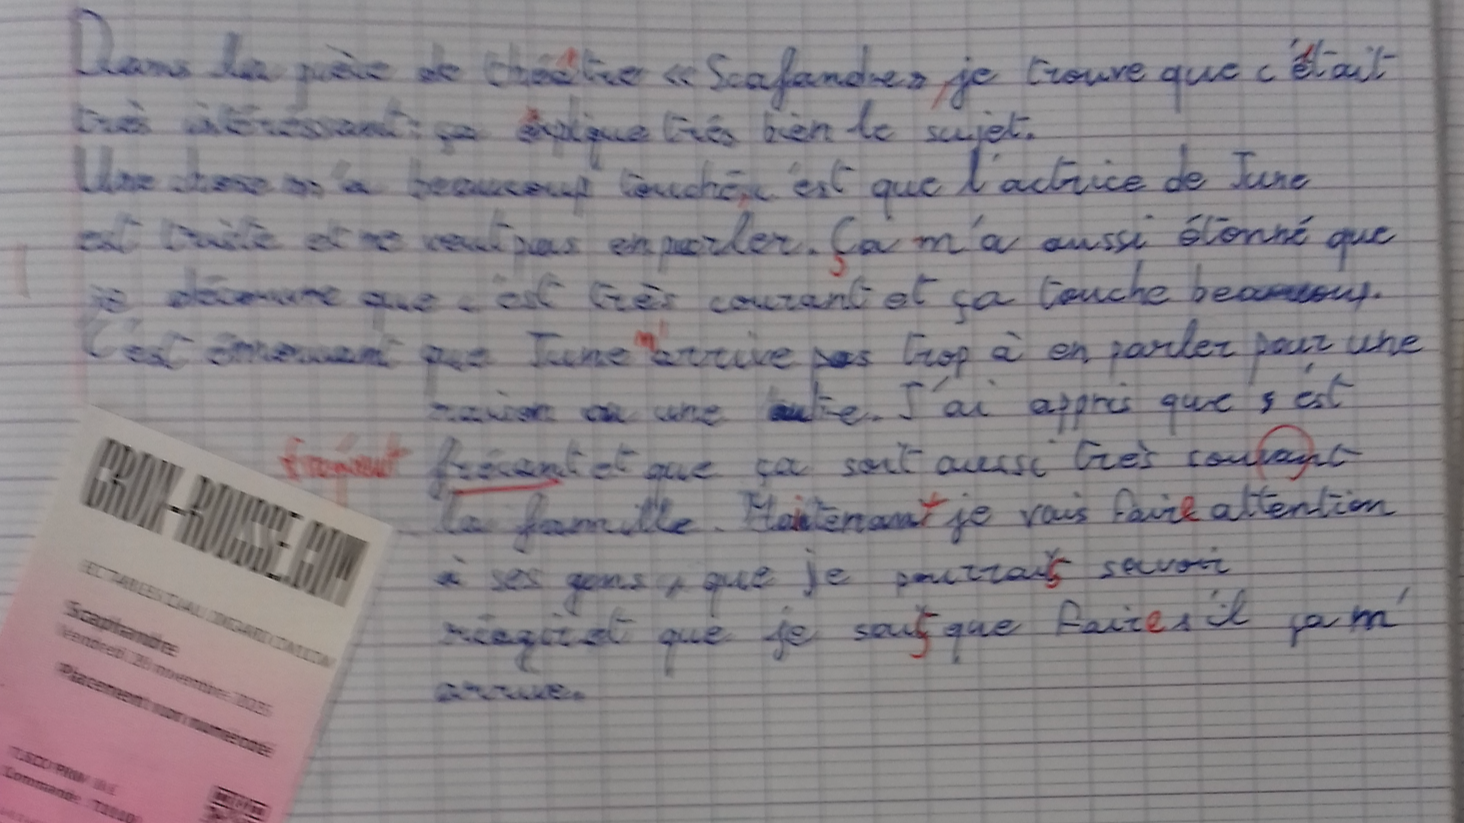 Dans la pièce de théâtre « Scafandre », je trouve que c'était
très intéressant : ça explique très bien le sujet.
Une chose m'a beaucoup touché, c'est que l'actrice de June
est triste et ne veut pas en parler. Ça m'a aussi étonné que
je découvre que c'est très courant et ça touche beaucoup.
C'est émouvant que June n'arrive pas trop à en parler pour une
raison ou une autre. J'ai appris que s'est
fréquent frécant et que ça soit aussi très couvant
la famille. Maintenant je vais faire attention
à ses gens, que je pourrais savoir
réagir et que je sais que faire s'il ça m'
arrive.
Scaphandre
Vendredi 28 novembre 2025
Placement non numérotée
Commande :